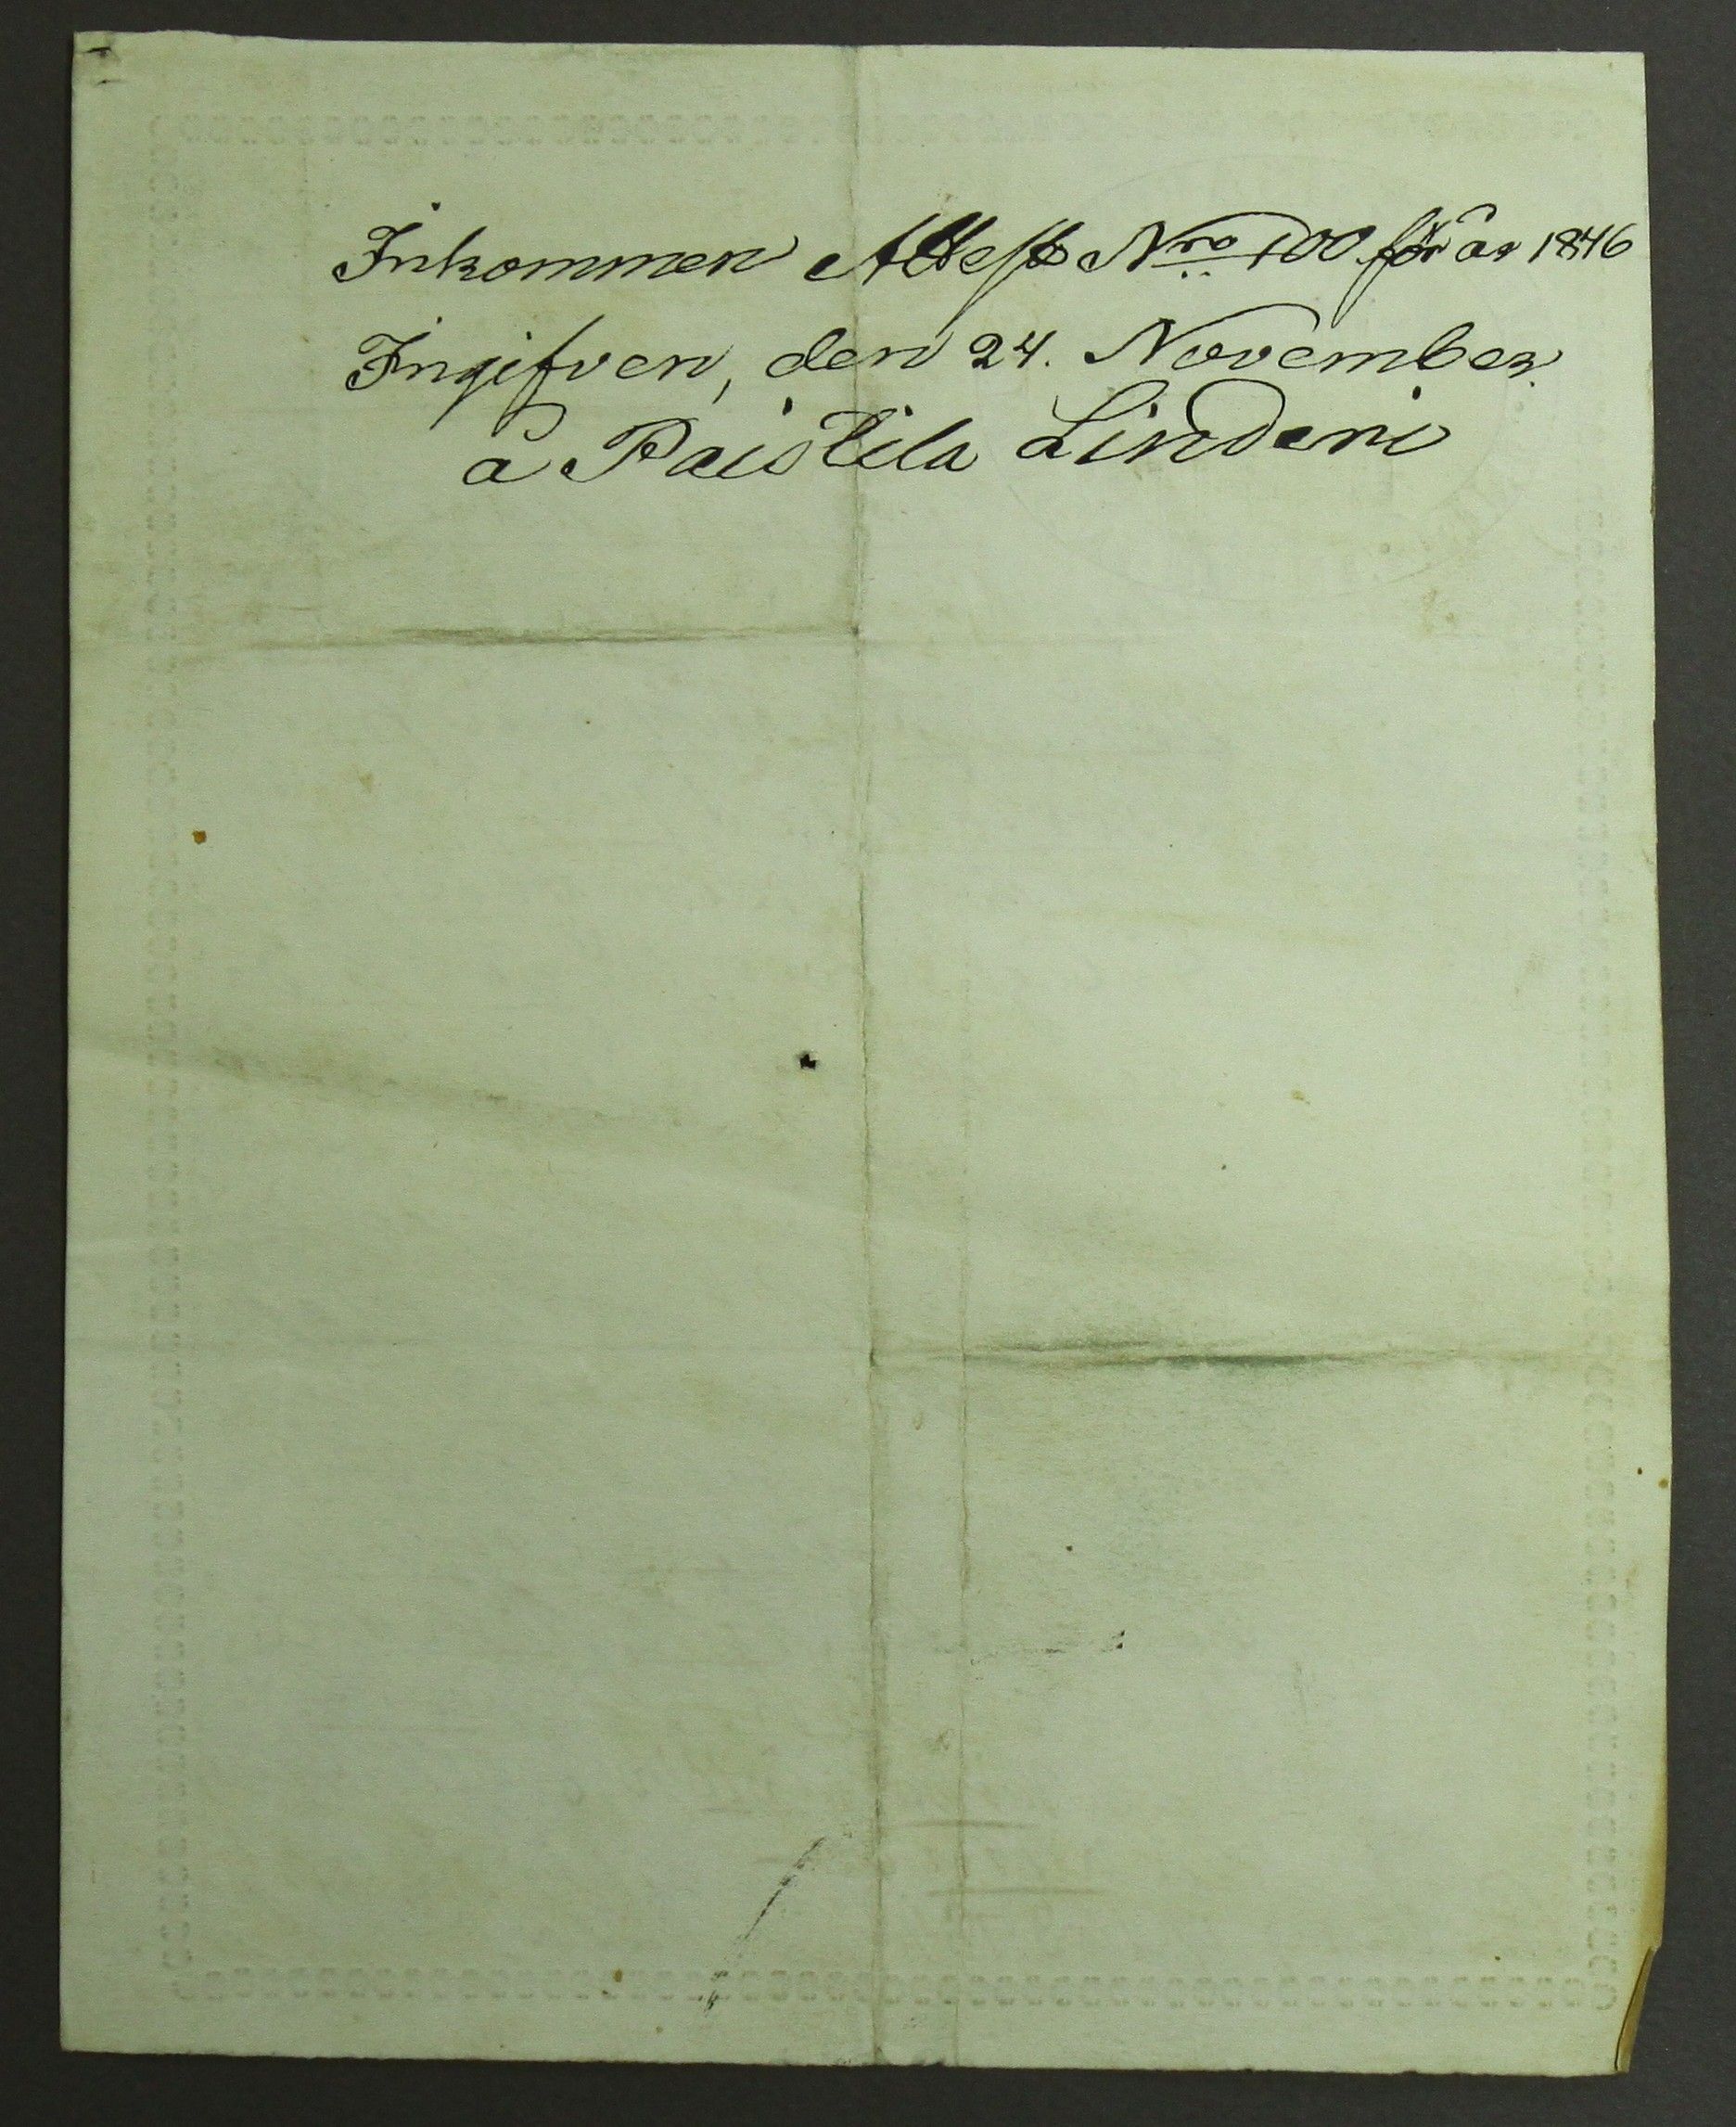 Inkommen Attest Nro 100 för år 1846
Ingifven, den 24. November.
å Paistila Lindeni